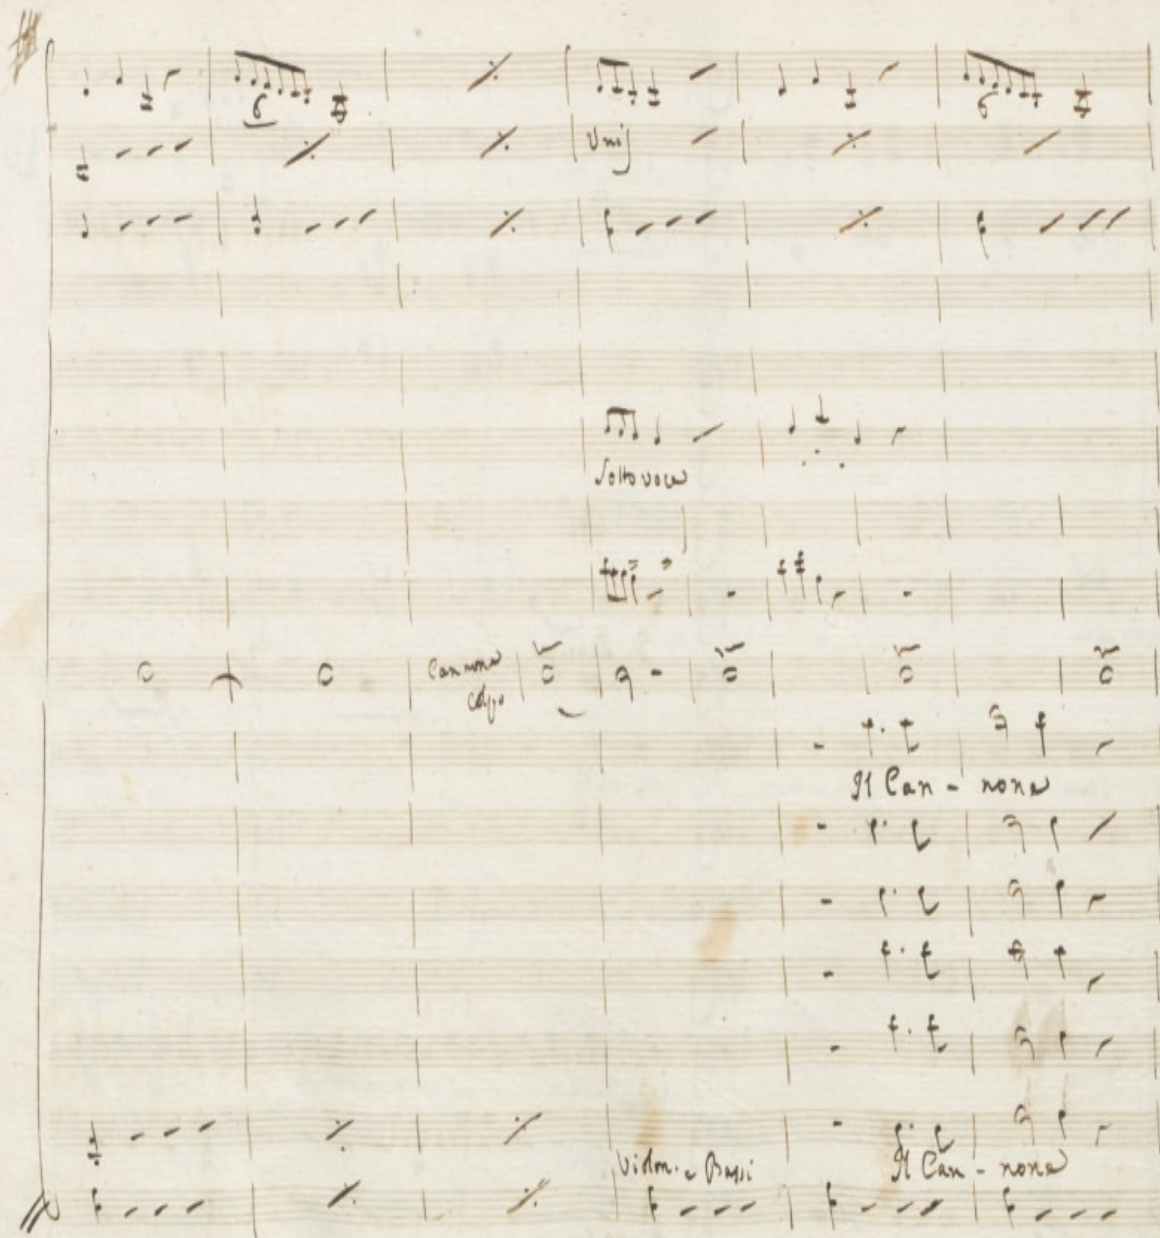 6
6
Unis
Sottovoce
Cannone
colpo
Il Can - none
Violon. e Bassi
Il Can - none